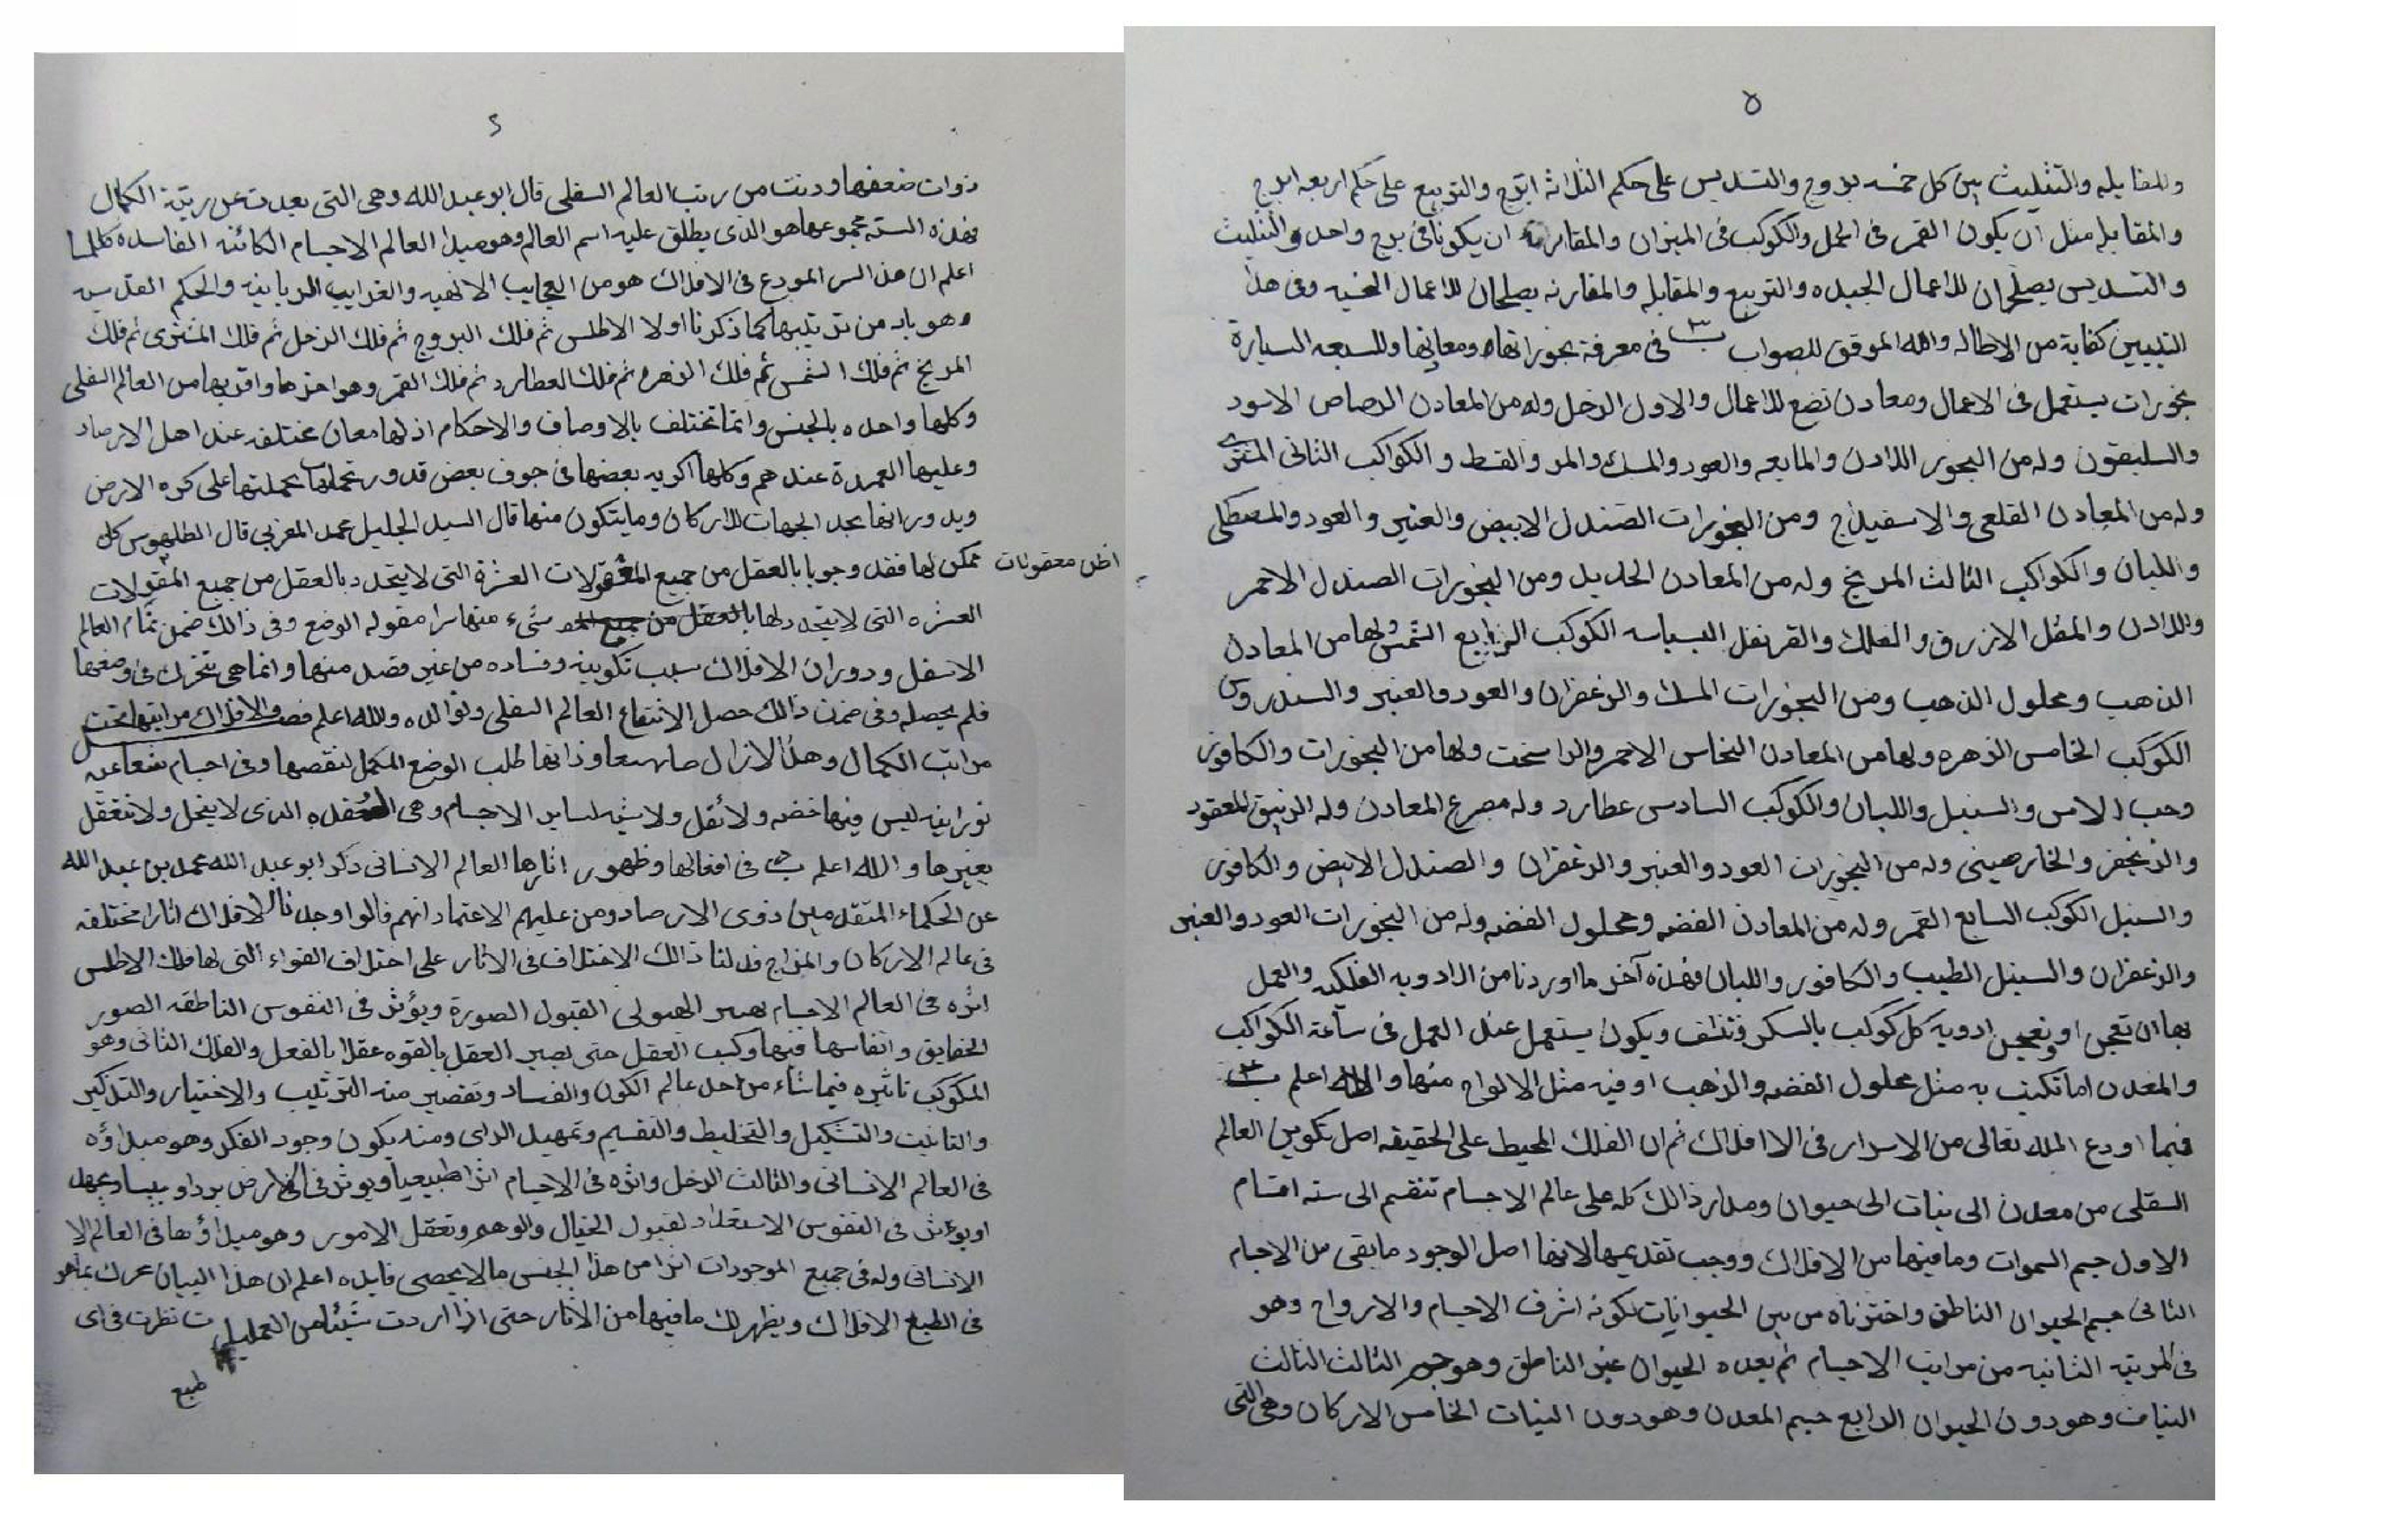 ٥
والمقابله والتثليث بين كل خمسه بروج والتسديس على حكم الثلاثه ابرج والتربيع على حكم اربعه ابرج
والمقابله مثل ان يكون القمر فى الحمل والكوكب فى الميزان والمقارنه ان يكونا فى برج واحد والتثليث
والتسديس يصلحان للاعمال الجيده والتربيع والمقابله والمقارنه يصلحان للاعمال وفى هذا
التبيين كفاية من الاطاله والله الموفق للصواب فى معرفة بخوراتها ومعانيها وللسبعه السيارة
بخورات يستعمل فى الاعمال ومعادن تضع للاعمال والاول الزحل وله من المعادن الرصاص الاسود
والسليقون وله من البخور اللادن والمايعه والعود والمسك والمر والقسط و الكواكب الثانى المشترى
وله من المعادن القلعى والاسفيداج ومن البخورات الصندل الابيض والعنبر والعود والمصطكى
واللبان والكواكب الثالث المريخ وله من المعادن الحديد ومن البخورات الصندل الاحمر
واللادن والمقل الازرق و والقرنفل البسباسه الكوكب الرابع الشمس ولها من المعادن
الذهب ومحلول الذهب ومن البخورات المسك والزعفران والعود والعنبر والسندروس
الكوكب الخامس الزهره ولها من المعادن النحاس الاحمر والراسخت ولها من البخورات والكافور
وحب الاس والسنبل واللبان والكوكب السادس عطارد وله المعادن وله الزنبق المعقود
والزنجفر والخارصينى وله من البخورات العود والعنبر والزعفران والصندل الابيض والكافور
والسنبل الكوكب السابع القمر وله من المعادن الفضه ومحلول الفضه وله من البخورات العود والعنبر
والزعفران والسنبل الطيب والكافور واللبان فهذه آخر ما اوردنا من الادويه الفلكيه والعمل
بها ان تعجن ادوية كل كوكب بالسكر وتنشف ويكون يستعمل عند العمل فى ساعة الكواكب
والمعدن اما تكتب به مثل محلول الفضه والذهب او فيه مثل الالواح منها والله اعلم
فيما اودع الله تعالى من الاسرار فى الافلاك ثم ان الفلك المحيط على الحقيقه اصل تكوين العالم
السفلى من معدن الى نبات الى حيوان ومدار ذالك كله على عالم الاجسام تنقسم الى سته اقسام
الاول جسم السموات وما فيها من الافلاك ووجب تقديمها لانها اصل الوجود ما بقى من الاجسام
الثانى جسم الحيوان الناطق واخترناه من بين الحيوانات لكونه اشرف الاجسام والارواح وهو
فى المرتبه الثانيه من مراتب الاجسام ثم بعده الحيوان غير الناطق وهو جسم الثالث الثالث
النبات وهو دون الحيوان الرابع جسم المعدن وهو دون النبات الخامس الاركان وهى التى
ذوات ضعفها ودنت من رتب العالم السفلى قال ابو عبد الله وهى التى بعدت عن رتبة الكمال
فهذه السته مجموعها هو الذى يطلق عليه اسم العالم وهو مبدا العالم الاجسام الكائنه الفاسده كلها
اعلم ان هذ السر المودع فى الافلاك هو من العجايب الالهيه والغرايب الربانيه والحكم القدسيه
وهو باد من ترتيبها كما ذكرنا اولا الاطلس ثم فلك البروج ثم فلك الزحل ثم فلك المشترى ثم فلك
المريخ ثم فلك الشمس ثم فلك الزهره ثم فلك العطارد ثم فلك القمر وهو اخرها واقربها من العالم السفلى
وكلها واحده بالجنس وانما تختلف بالاوصاف والاحكام اذ لها معان مختلفه عند اهل الارصاد
وعليها العمدة عندهم وكلها اكريه بعضها فى جوف بعض قد ورتحملها بجملتها على كره الارض
وبدورانها يجد الجهات للاركان وما يتكون منها قال السيد الجليل محمد المغربى قال كل
ممكن لها فقد وجوبا بالعقل من جميع المقولات العشرة التى لا يتحدد بالعقل من جميع المقولات
اظن معقولات
العشره التى لا يتحد لها بالعقل من جميع شىء منها سرا مقوله الوضع وفى ذالك ضمن تمام العالم
الاسفل ودوران الافلاك سبب تكوينه وفساده من غير قصد منها وانما هى تتحرك فى وضعها
فلم يحصله وفى ضمن ذالك حصل الانتفاع العالم السفلى والله اعلم الافلاك مراتبها تحت
مراتب الكمال وهذ الازال طلب الوضع المكمل لنقصها وفى اجسام شعاعيه
نورانيه ليس فيها خفه ولا ثقل ولا شبه لساير الاجسام وهى الذى لا يتحل ولا تتعقل
بغيرها والله اعلم فى افعالها وظهور اثارها العالم الانسانى ذكر ابو عبد الله محمد بن عبد الله
عن الحكماء المتقدمين ذوى الارصاد ومن عليهم الاعتماد انهم قالوا وجدنا للافلاك اثارا مختلفه
فى عالم الاركان والمزاج فدلنا ذالك الاختلاف فى الاثار على اختلاف القواء التى لها فلك الاطلس
اثره فى العالم الاجسام الهيولى القبول الصورة ويؤثر فى النفوس الناطقه الصور
الحقايق وانفاسها فيها وكسب العقل حتى يصير العقل بالقوه عقلا بالفعل والفلك الثانى وهو
المكوكب تاثيره فيما شاء من احد عالم الكون والفساد وتقصير منه الترتيب والاختيار والتذكير
والتانيث والتشكيل والتخليط والتقسيم وتمهيد الراى ومنه يكون وجود الفكر وهو مبداؤه
فى العالم الانسانى والثالث الزحل واثره فى الاجسام اثرا طبيعيا ويوثر فى الارض بردا و
اويوءثر فى النفوس الاستعداد لقبول الخيال والوهم وتعقل الامور وهو مبداؤها فى العالم الا
الانسانى وله فى جميع الموجودات اثرا من هذا الجنس ما لا يحصى فايده اعلم ان هذا البيان
فى الطبع الافلاك ويظهر لك ما فيها من الاثار حتى اذا اردت شيئا من العمليات نظرت فى اى
طبع